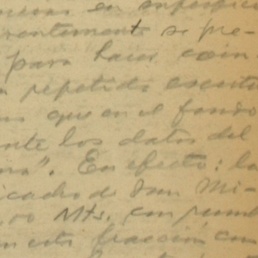 en superfici
rentemente se pre-
para hacer coin
repetido escritu
que en el fondo
nte los datos del
". En efecto: la
icado de San Mi-
00 Mts. con rumb
en esta fracción con